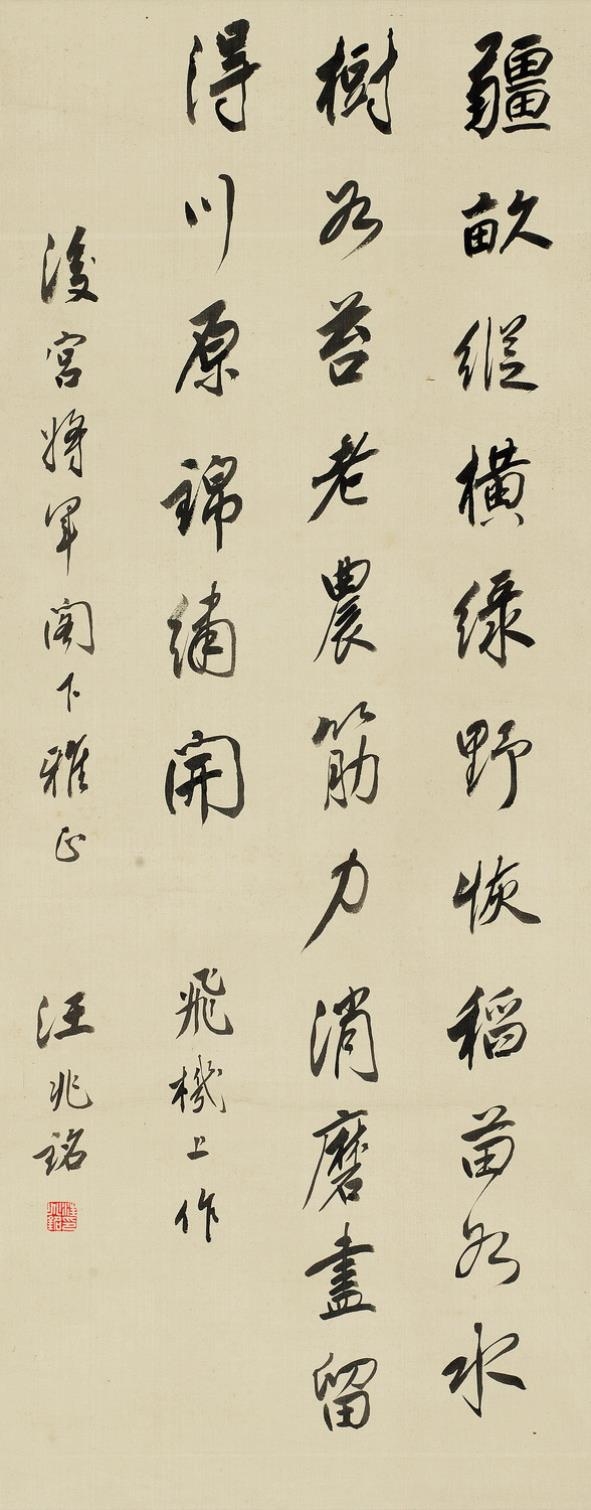 疆畝縱橫綠野恢稻苗如水
樹如苔老農筋力消磨盡留
得川原錦繡開 飛機上作
後宮將軍閣下雅正 汪兆銘